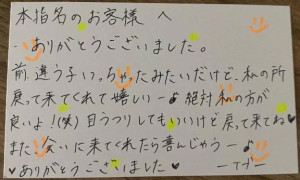 本指名のお客様へ
ありがとうございました。
前、違う子いっちゃったみたいだけど、私の所
戻って来てくれて嬉しいー♪絶対私の方が
良いよ!(笑)目うつりしてもいいけど戻って来てね♥
また会いに来てくれたら喜んじゃうー♪
♥ありがとうございました♥